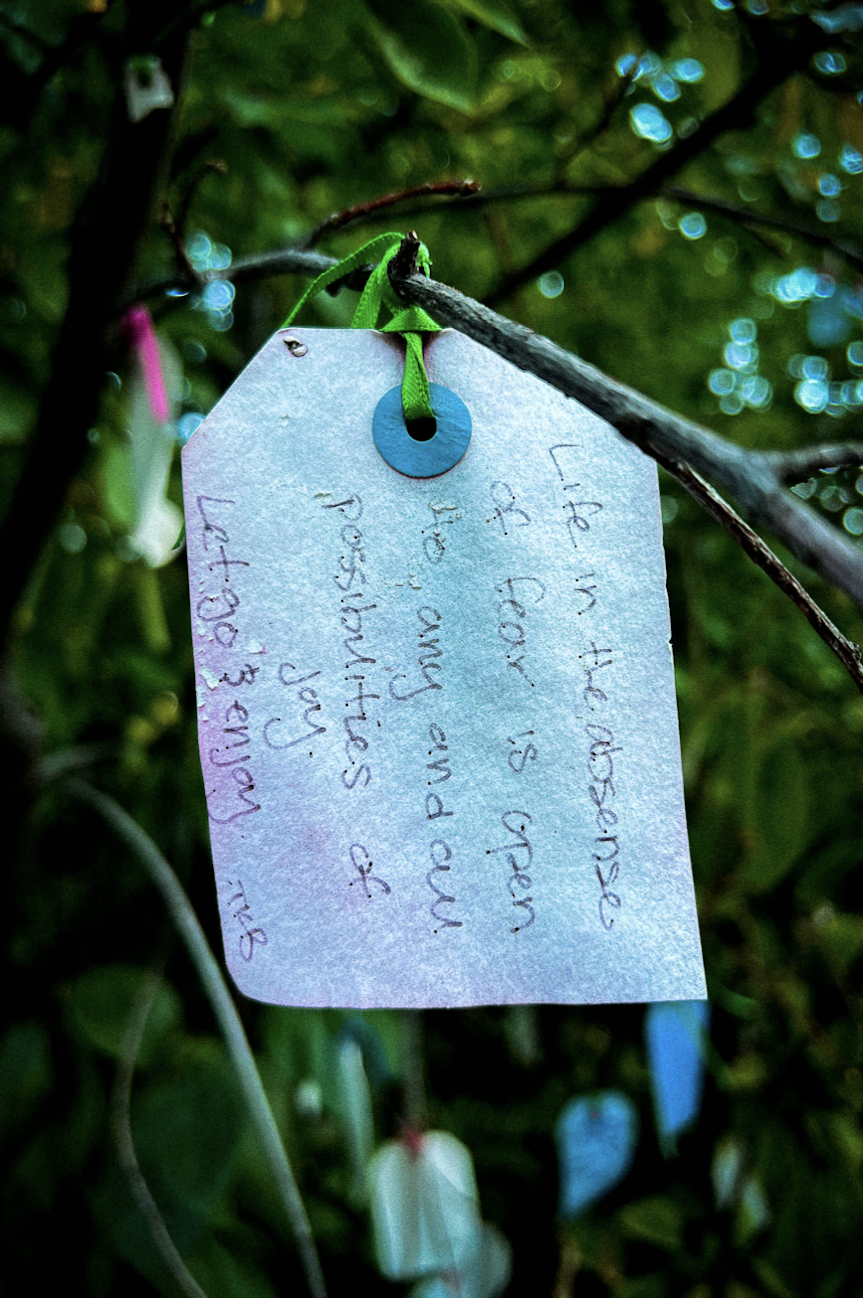 Life in the absense
of fear is open
to any and all
possibilities of
joy.
Let go & enjoy.
:TKB